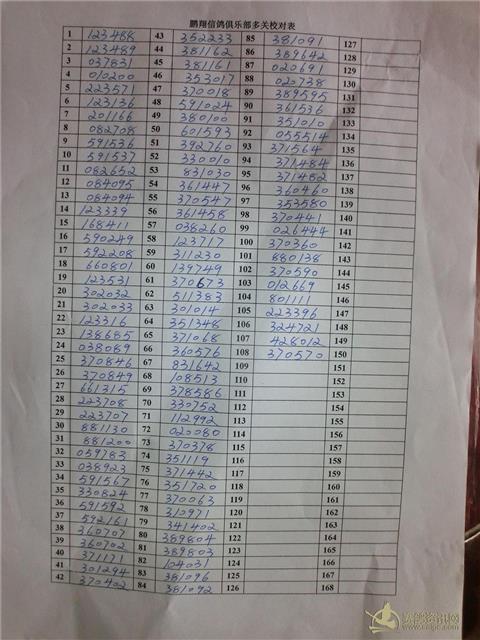 鹏翔信鸽俱乐部多关校对表
1 123488 43 352233 85 381091 127
2 123489 44 381162 86 389642 128
3 037831 45 381161 87 020691 129
4 010200 46 353017 88 020738 130
5 223571 47 370018 89 389595 131
6 123136 48 591024 90 361536 132
7 201166 49 380100 91 351010 133
8 082708 50 601593 92 055514 134
9 591536 51 392760 93 371564 135
10 591537 52 330010 94 371484 136
11 082652 53 831030 95 371482 137
12 084095 54 361447 96 360460 138
13 084094 55 370547 97 353580 139
14 123339 56 361458 98 370441 140
15 168411 57 038260 99 026444 141
16 590249 58 123717 100 370360 142
17 592208 59 311230 101 880138 143
18 660801 60 139749 102 370590 144
19 123531 61 370673 103 012669 145
20 302032 62 511383 104 801111 146
21 302033 63 301014 105 223396 147
22 123316 64 351348 106 324721 148
23 138685 65 371068 107 428012 149
24 038089 66 360576 108 370570 150
25 370846 67 831642 109 151
26 370849 68 108513 110 152
27 661315 69 378586 111 153
28 223708 70 330752 112 154
29 223707 71 112992 113 155
30 881130 72 020080 114 156
31 881200 73 370378 115 157
32 059783 74 351119 116 158
33 038923 75 371442 117 159
34 591567 76 351720 118 160
35 330824 77 370063 119 161
36 591592 78 310971 120 162
37 592161 79 341402 121 163
38 360707 80 389804 122 164
39 360702 81 389803 123 165
40 371171 82 104031 124 166
41 301294 83 381096 125 167
42 370402 84 381092 126 168